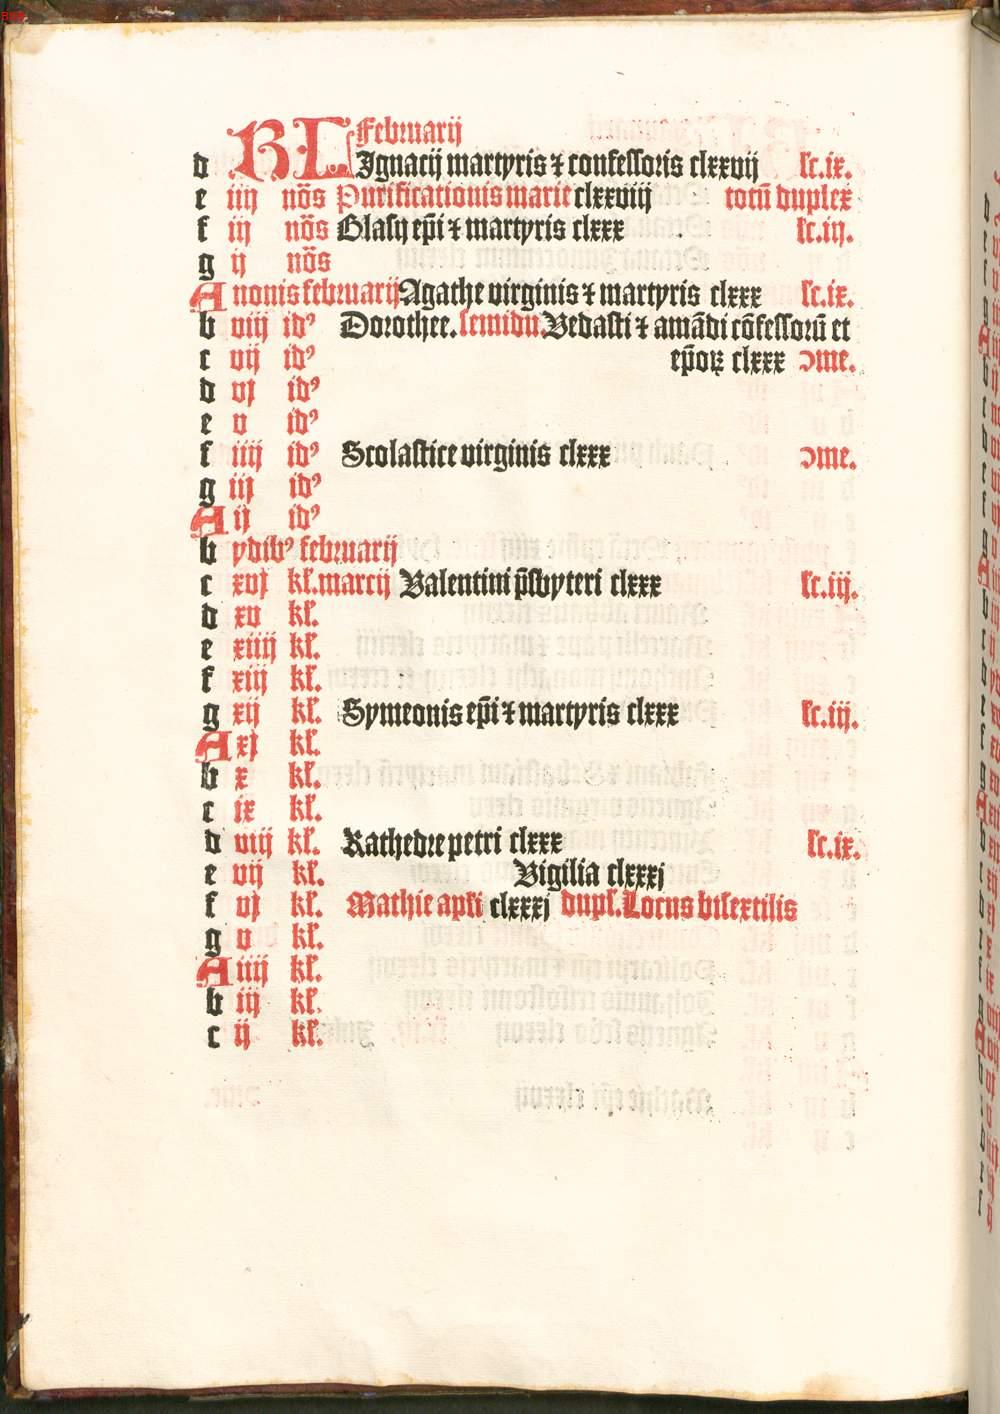 KL Februarij
d Ignacij martyris ⁊ confessoris clxxvij sc.ix.
e iiij nōs Purificationis marie clxxviij totū duplex
f iij nōs Blasij ep̄i ⁊ martyris clxxx sc.iij.
g ij nōs
A nonis februarij Agathe virginis ⁊ martyris clxxx sc.ix.
b viij idꝰ Dorothee. semidu. Vedasti ⁊ amādi cōfessorū et
c vij idꝰ ep̄oꝝ clxxx ɔme.
d vj idꝰ
e v idꝰ
f iiij idꝰ Scolastice virginis clxxx ɔme.
g iij idꝰ
A ij idꝰ
b ydibꝰ februarij
c xvj kł. marcij Valentini p̄sbyteri clxxx sc.iij.
d xv kł.
e xiiij kł.
f xiij kł.
g xij kł. Symeonis ep̄i ⁊ martyris clxxx sc.iij.
A xj kł.
b x kł.
c ix kł.
d viij kł. Kathedre petri clxxx sc.ix.
e vij kł. Vigilia clxxxj
f vj kł. Mathie apłi clxxxj dupł. Locus bisextilis
g v kł.
A iiij kł.
b iij kł.
c ij kł.